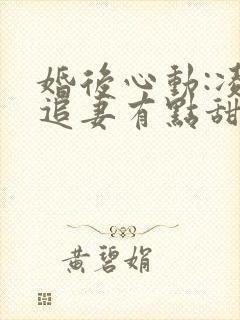 婚後心動:凌
追妻有點甜
黃碧娟